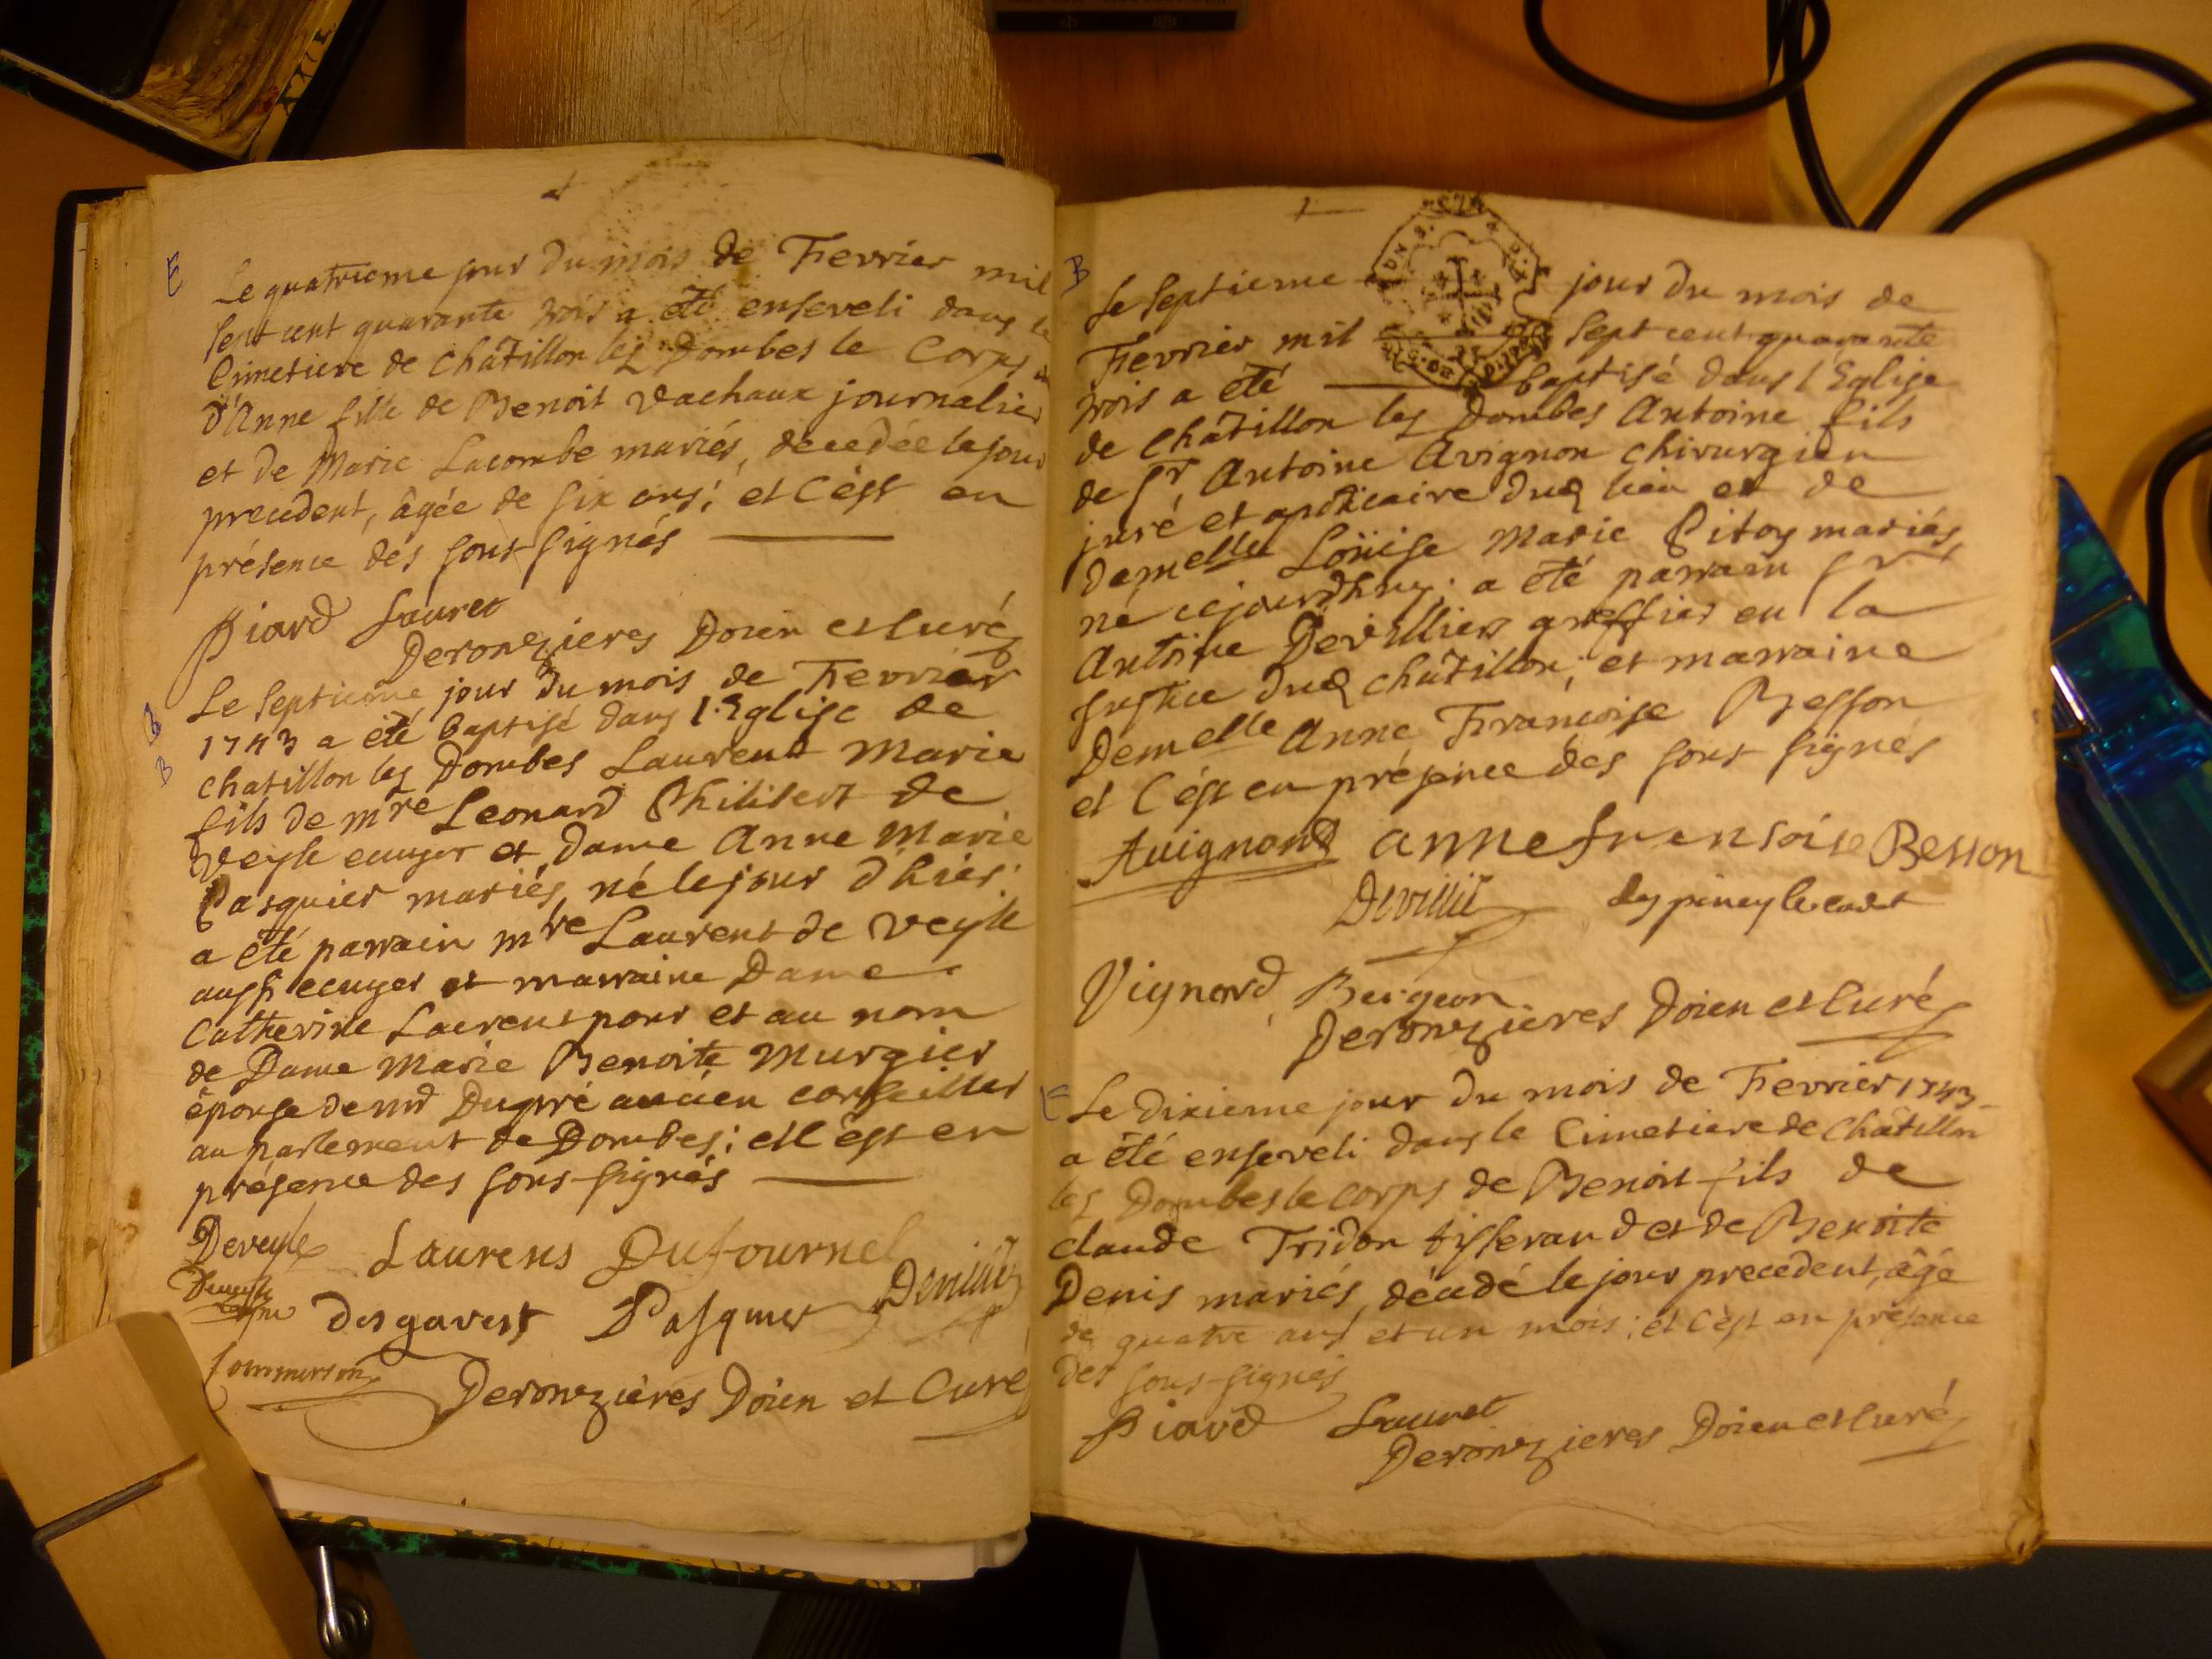 E
Le quatrieme jour du mois de Fevrier mil
sept cent quarante trois a été enseveli dans le
Cimetiere de Châtillon les Dombes le Corps
d'Anne fille de Benoit Vachaux journalier
et de Marie Lacombe mariés, decedée le jour
precedent, âgée de six ans; et C'èst en
présence des sous-signés
Piard Lauret
Deronzieres Doien et Curé
B
Le septieme jour du mois de Fevrier
1743 a été baptisé dans l'Eglise de
B
chatillon les Dombes Laurent Marie
fils de mre Leonard Philibert de
Veyle ecuyer et dame Anne Marie
Pasquier mariés, né le jour d'hier;
a été parrain mre Laurent de Veyle
aussi ecuyer et marraine Dame
Catherine Laurens pour et au nom
de Dame Marie Benoite Murgier
épouse de mr Dupré ancien conseiller
au parlement de Dombes; et C'èst en
présence des sous-signés
Deveyle Laurens Dufournel
Desgarest Pasquier Devillie
Commerson
Deronzières Doien et Curé
B
Le septieme jour du mois de
Fevrier mil sept cent quarante
trois a été baptisé dans l'Eglise
de Châtillon les Dombes Antoine fils
de Sr Antoine Avignon chirurgien
juré et apoticaire dud lieu et de
demelle Loüise Marie Pitoy mariés,
né cejourdhuy; a été parrain Sr
Antoine Devilliers greffier en la
Justice dud châtillon; et marraine
Demelle Anne Françoise Besson
et C'èst en présence des sous signés
Avignond anne fransoise Besson
Devillie despiney le cadet
Vignard Burgeon
Deronzieres Doien et Curé
E
Le dixieme jour du mois de Fevrier 1743
a été enseveli dans le Cimetiere de Châtillon
les Dombes le corps de Benoit fils de
claude Tridon tisserand et de Benoite
Denis mariés, décédé le jour precedent, âgé
de quatre ans et un mois; et C'èst en présence
des sous-signés
Piard Lauret
Deronzieres Doien et Curé